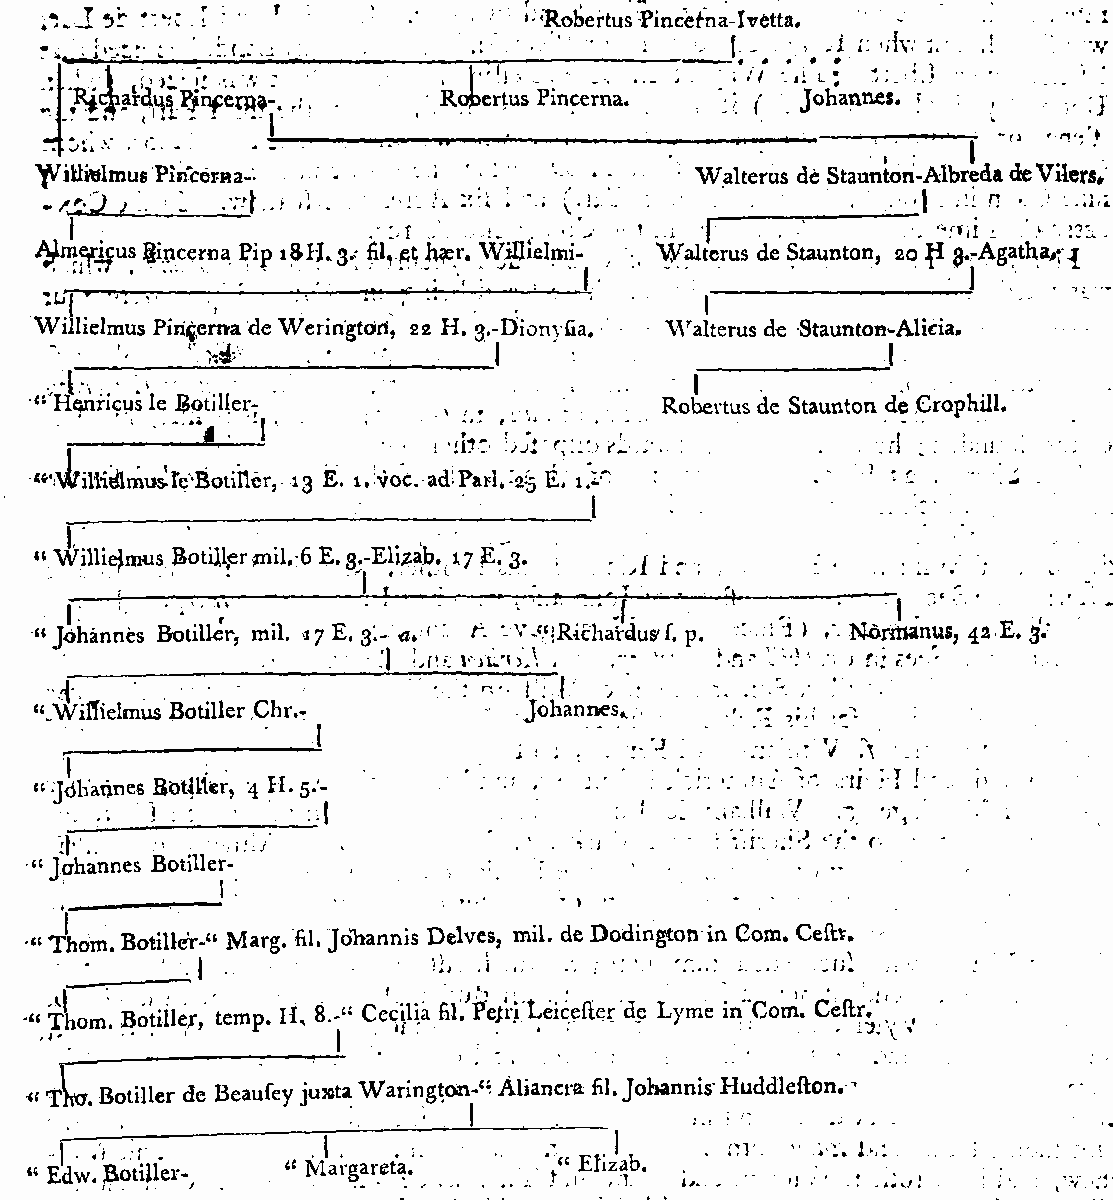 Robertus Pincerna-Ivetta.
Richardus Pincerna-. Robertus Pincerna. Johannes.
Willielmus Pincerna-. Walterus de Staunton-Albreda de Vilers.
Almericus Pincerna Pip 18 H. 3. fil. et hær. Willielmi- Walterus de Staunton, 20 H 3.-Agatha.
Willielmus Pincerna de Werington, 22 H. 3.-Dionysia. Walterus de Staunton-Alicia.
“ Henricus le Botiller- Robertus de Staunton de Crophill.
“ Willielmus le Botiller, 13 E. 1. voc. ad Parl. 25 E. 1.-
“ Willielmus Botiller mil. 6 E. 3.-Elizab. 17 E. 3.
“ Johannes Botiller, mil. 17 E. 3.- a. “ Richardus ſ. p. Normanus, 42 E. 3.
“ Willielmus Botiller Chr.- Johannes.
“ Johannes Botiller, 4 H. 5.-
“ Johannes Botiller-
“ Thom. Botiller-“ Marg. fil. Johannis Delves, mil. de Dodington in Com. Ceſtr.
“ Thom. Botiller, temp. H. 8.-“ Cecilia fil. Petri Leiceſter de Lyme in Com. Ceſtr.
“ Tho. Botiller de Beauſey juxta Warington-“ Aliancra fil. Johannis Huddleſton.
“ Edw. Botiller- “ Margareta. “ Elizab.